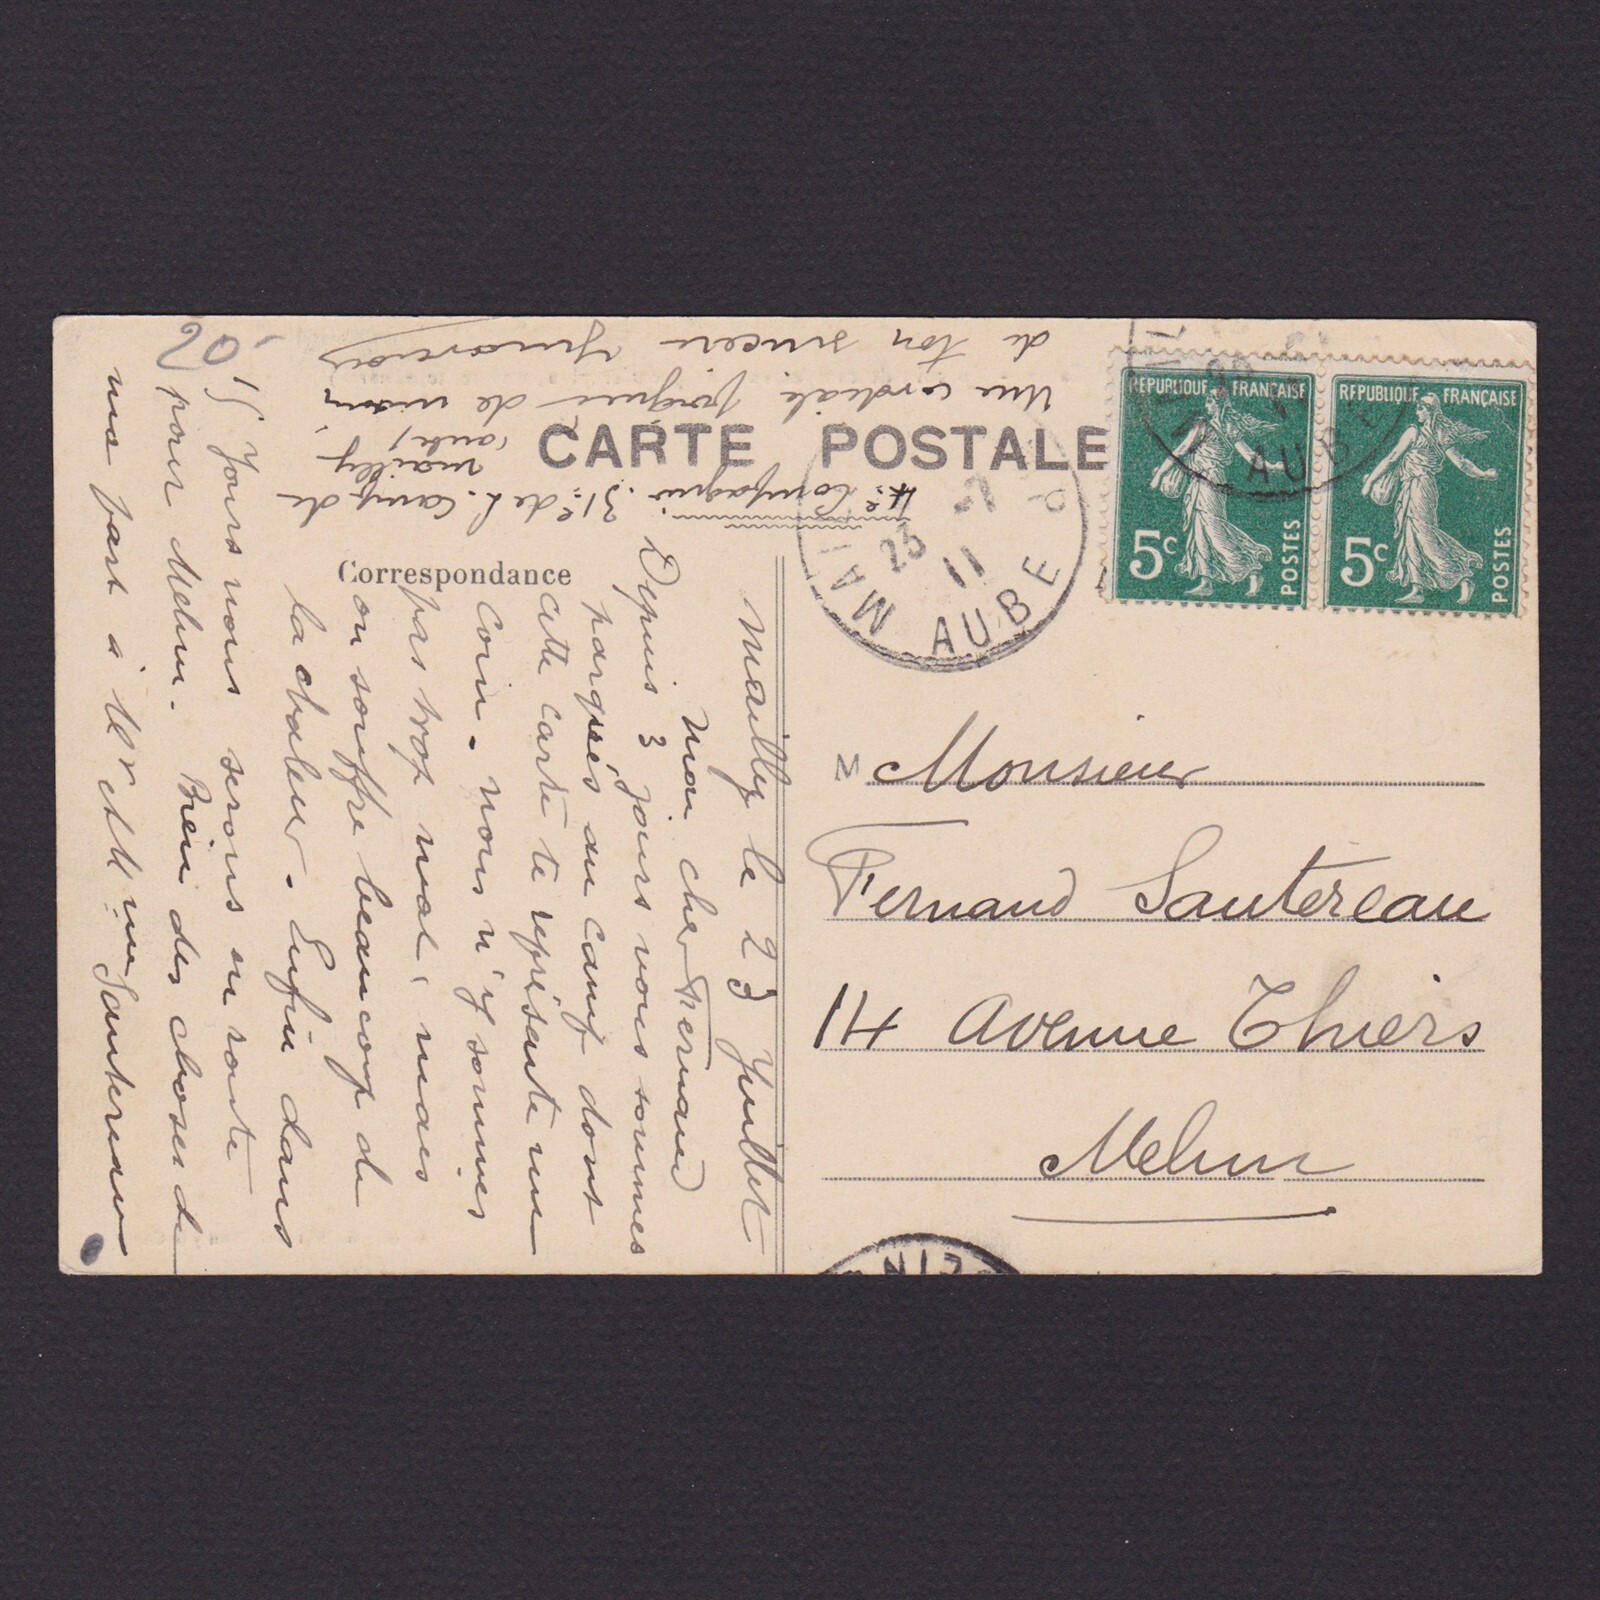 CARTE POSTALE
Correspondance
Mailly le 23 Juillet
Mon cher Fernand
Depuis 3 jours nous sommes
parqués au camp dont
cette carte te représente un
coin. Nous n'y sommes
pas trop mal, mais
on souffre beaucoup de
la chaleur. Enfin dans
15 jours nous serons en route
pour Melun. Bien des choses de
ma part à Mr et Mme Sautereau
4e Compagnie. 31e de L. Camp de
Mailly
(Aube)
Une cordiale poignée de main
de ton sincère
20
REPUBLIQUE FRANÇAISE
5c
POSTES
REPUBLIQUE FRANÇAISE
5c
POSTES
AUBE
MAI
23
-7
11
AUBE
M
Monsieur
Fernand Sautereau
14 Avenue Thiers
Melun